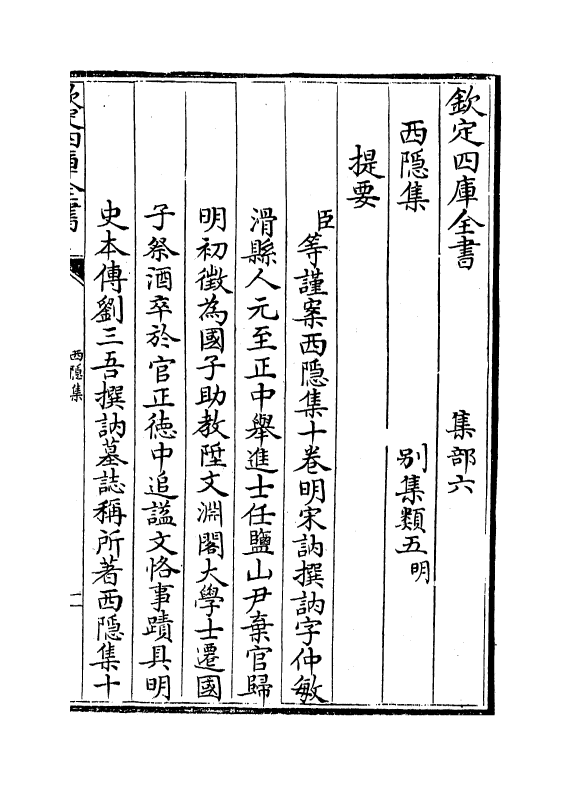 欽定四庫全書　集部六
西隠集　别集類五明
提要
臣等謹案西隠集十卷明宋訥撰訥字仲敏
滑縣人元至正中舉進士任鹽山尹棄官歸
明初徴為國子助教陞文淵閣大學士遷國
子祭酒卒於官正徳中追諡文恪事蹟具明
史本傳劉三吾撰訥墓誌稱所著西隠集十
欽定四庫全書
西隠集